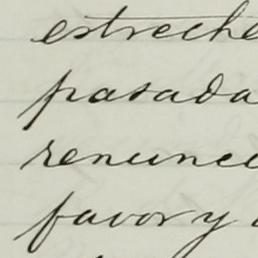 estreche
pasada
renunce
favor y